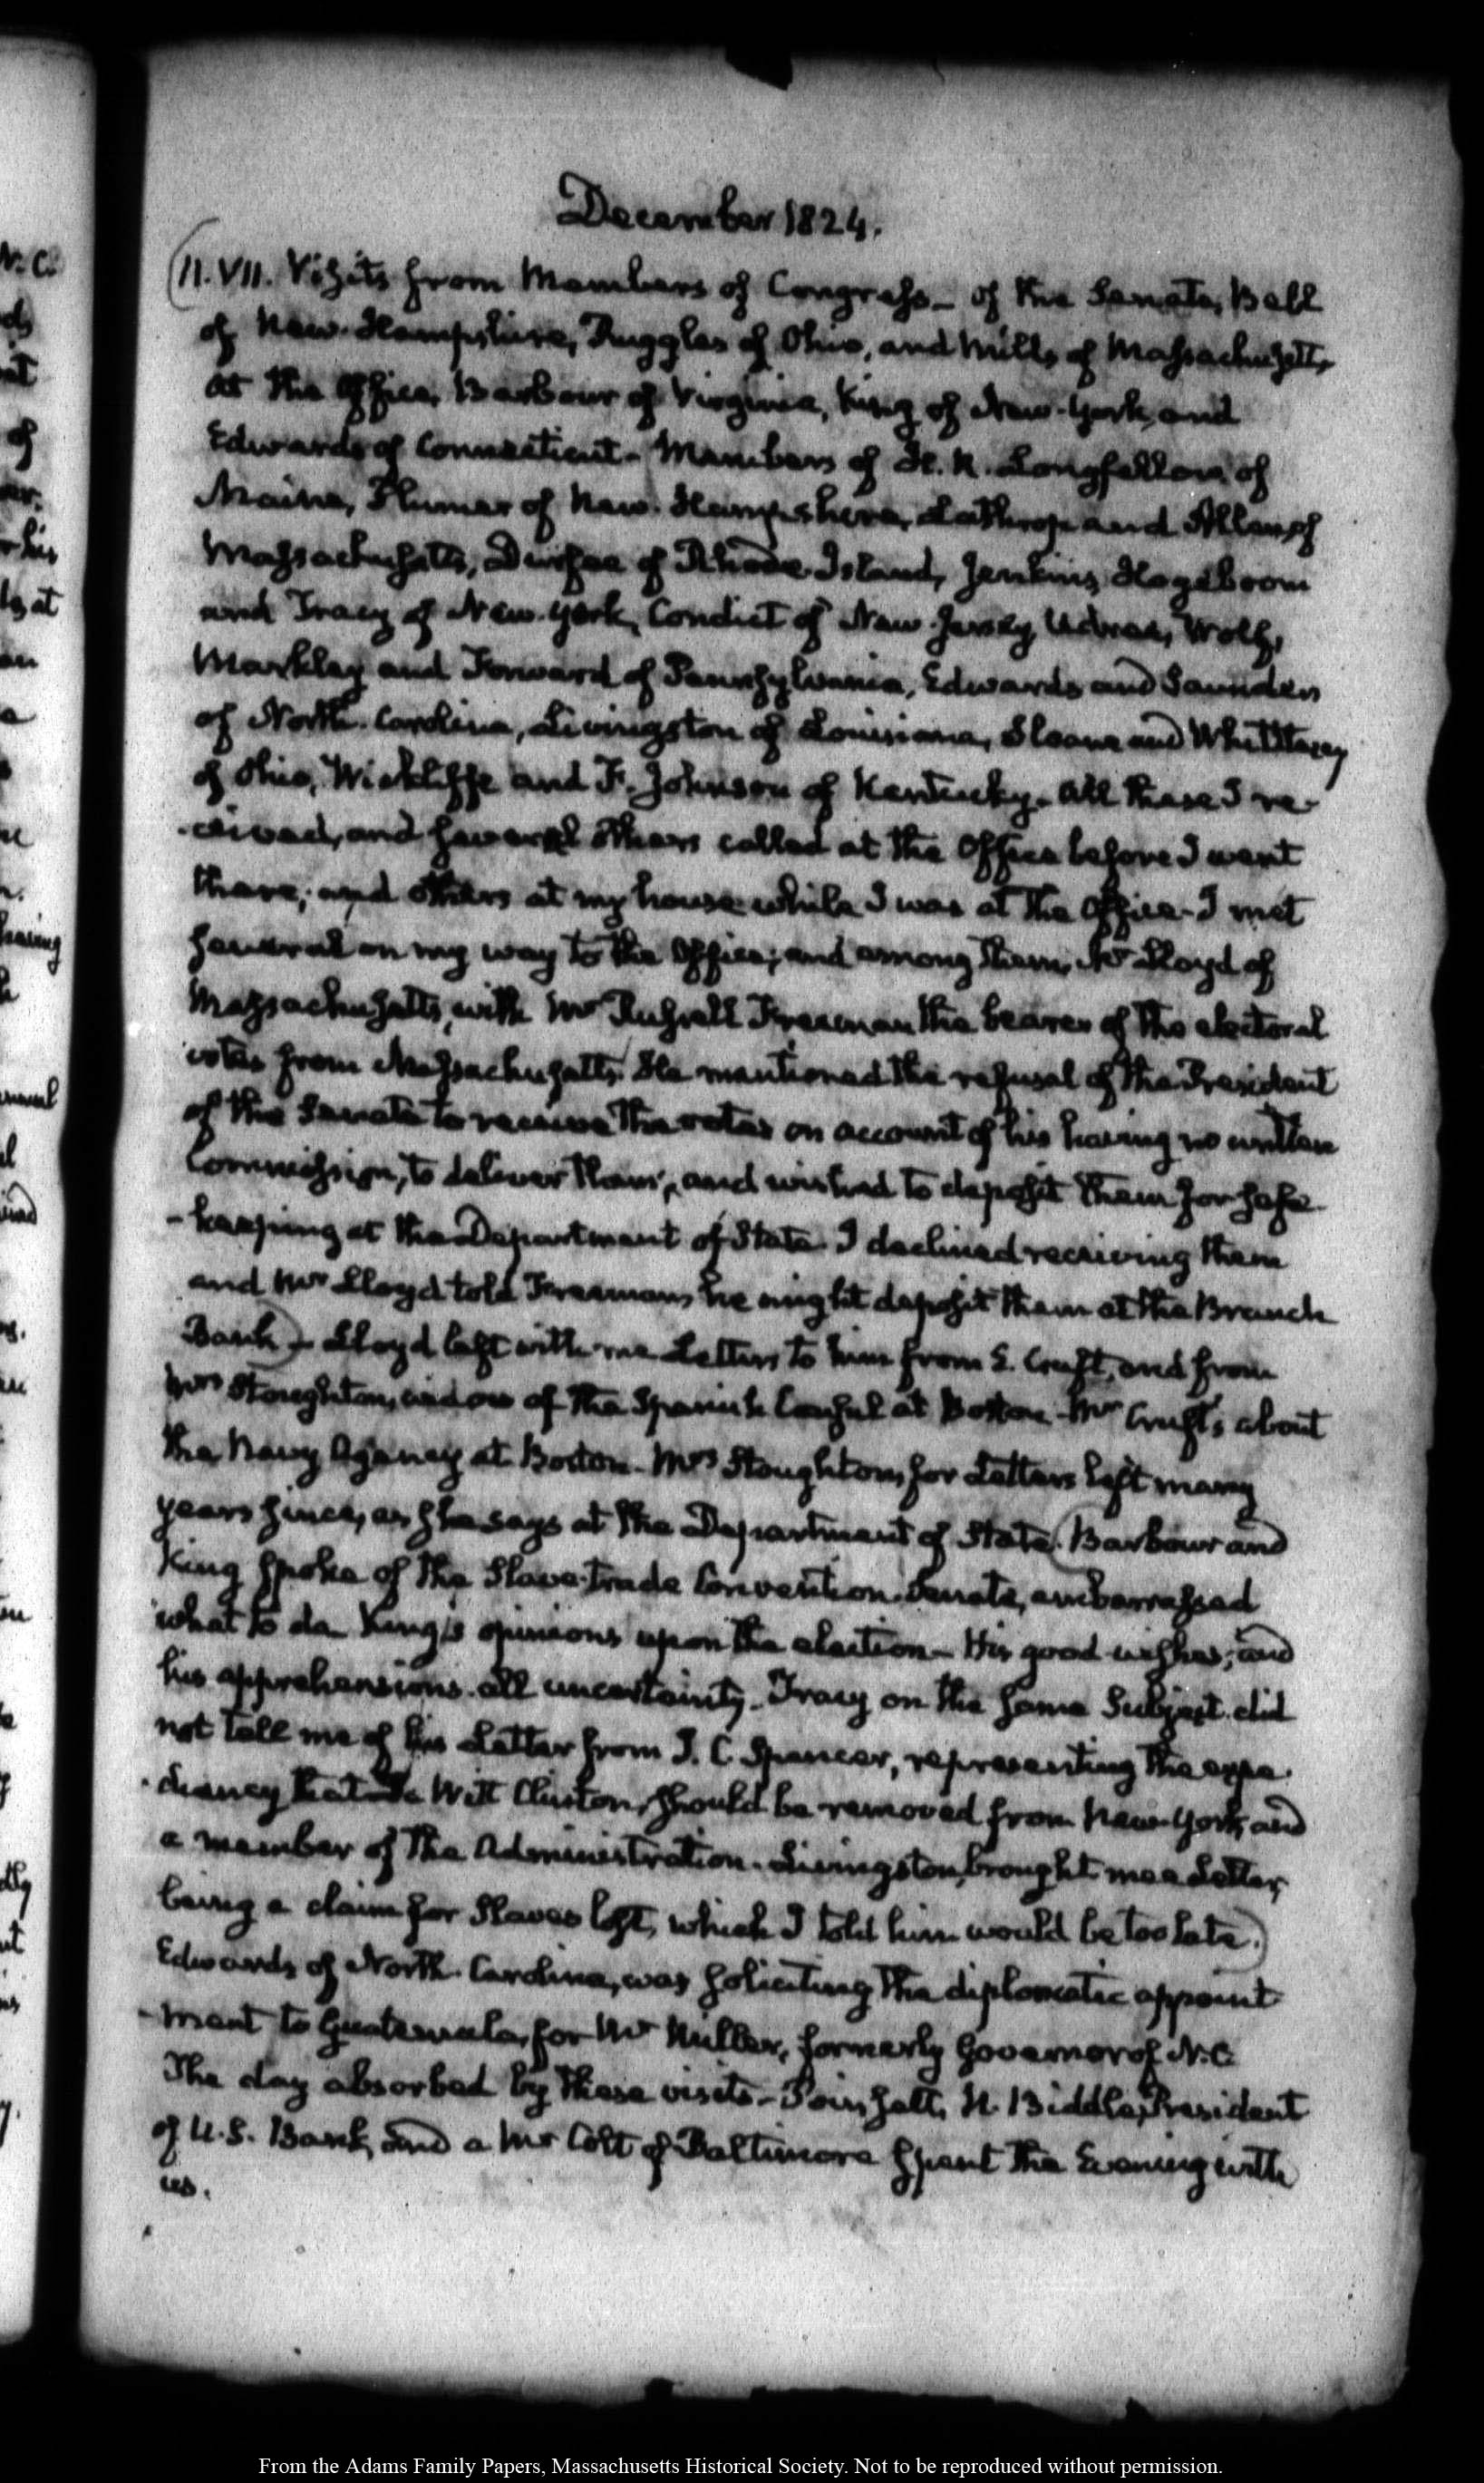 December 1824.
(11. VII. Visits from Members of Congress – of the Senate, Bell
of New-Hampshire, Ruggles of Ohio, and Mills of Massachusetts,
at the Office, Barbour of Virginia, King of New-York, and
Edwards of Connecticut – Members of H. R. Longfellow of
Maine, Plumer of New-Hampshire, Lathrop and Allen of
Massachusetts, Durfee of Rhode-Island, Jenkins, Hogeboom
and Tracy of New-York, Condict of New-Jersey, Udree, Wolf,
Markley and Forward of Pennsylvania, Edwards and Saunders
of North-Carolina, Livingston of Louisiana, Sloane and Whittlesey
of Ohio, Wickliffe and F. Johnson of Kentucky. All these I re-
-ceived, and several others called at the Office before I went
there; and others at my house while I was at the Office – I met
several on my way to the Office; and among them, Mr Lloyd of
Massachusetts, with Mr Russell Freeman the bearer of the electoral
votes from Massachusetts. He mentioned the refusal of the President
of the Senate to receive the votes on account of his having no written
Commission, to deliver them; and wished to deposit them for safe-
-keeping at the Department of State. I declined receiving them
and Mr Lloyd told Freeman, he might deposit them at the Branch
Bank) – Lloyd left with me Letters to him from E. Cruft, and from
Mrs Stoughton, widow of the Spanish Consul at Boston – Mr Cruft's about
the Navy Agency at Boston – Mrs Stoughton, for Letters left many
years since, as she says at the Department of State. (Barbour and
King spoke of the Slave-trade Convention. Senate, embarrassed
what to do. King's opinions upon the election – His good wishes; and
his apprehensions. all uncertainty. Tracy on the same Subject. did
not tell me of his Letter from J. C. Spencer, representing the expe-
-diency that De Witt Clinton, should be removed from New-York, and
a member of the Administration. Livingston, brought me a Letter,
being a claim for Slaves lost, which I told him would be too late.)
Edwards of North-Carolina, was soliciting the diplomatic appoint-
-ment to Guatemala, for Mr Miller, formerly Governor of N.C.
The day absorbed by these visits – Poinsett, N. Biddle, President
of U.S. Bank, and a Mr Colt of Baltimore spent the Evening with
us.
From the Adams Family Papers, Massachusetts Historical Society. Not to be reproduced without permission.